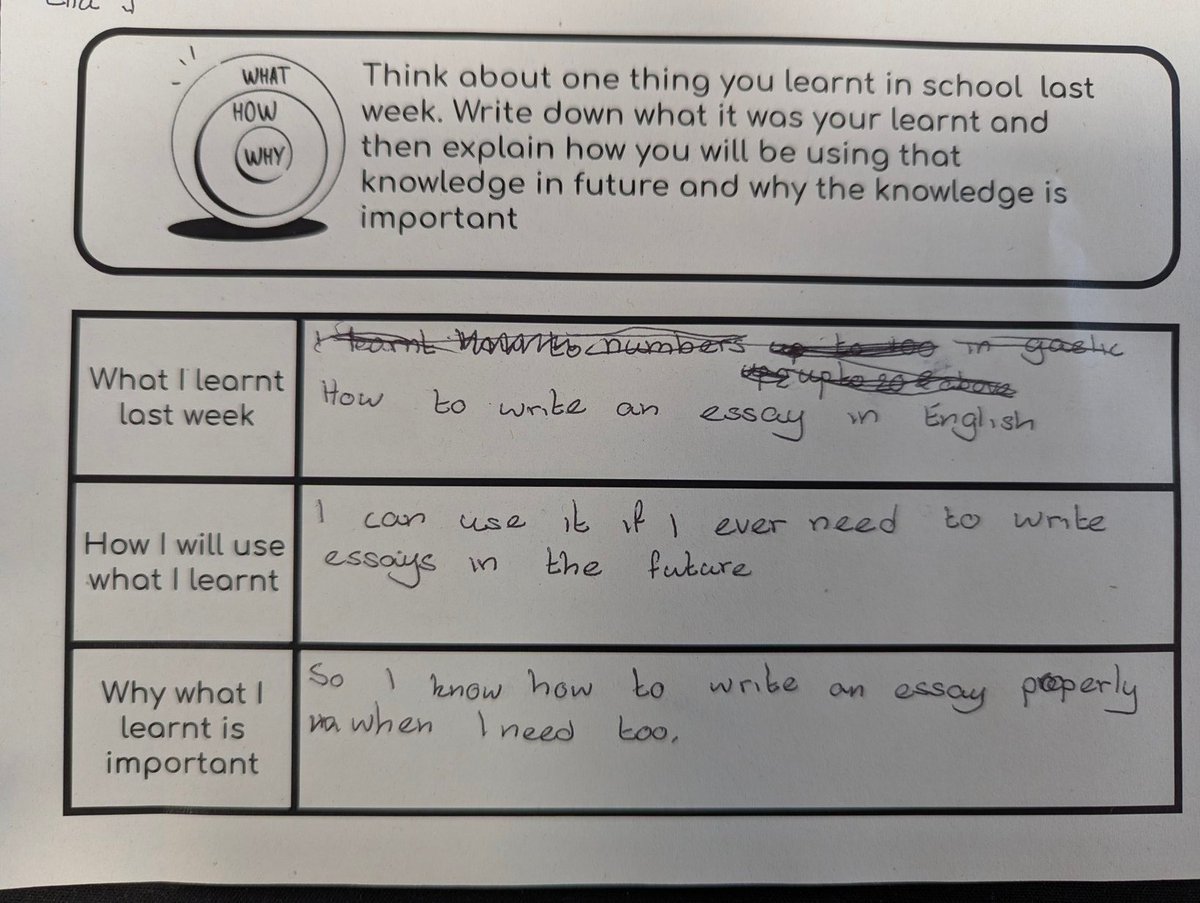 WHAT
HOW
WHY
Think about one thing you learnt in school last
week. Write down what it was your learnt and
then explain how you will be using that
knowledge in future and why the knowledge is
important
What I learnt
last week
I learnt numbers up to 100 in gaelic
up to 20 & above
How to write an essay in English
How I will use
what I learnt
I can use it if I ever need to write
essays in the future
Why what I
learnt is
important
So I know how to write an essay properly
when I need too.